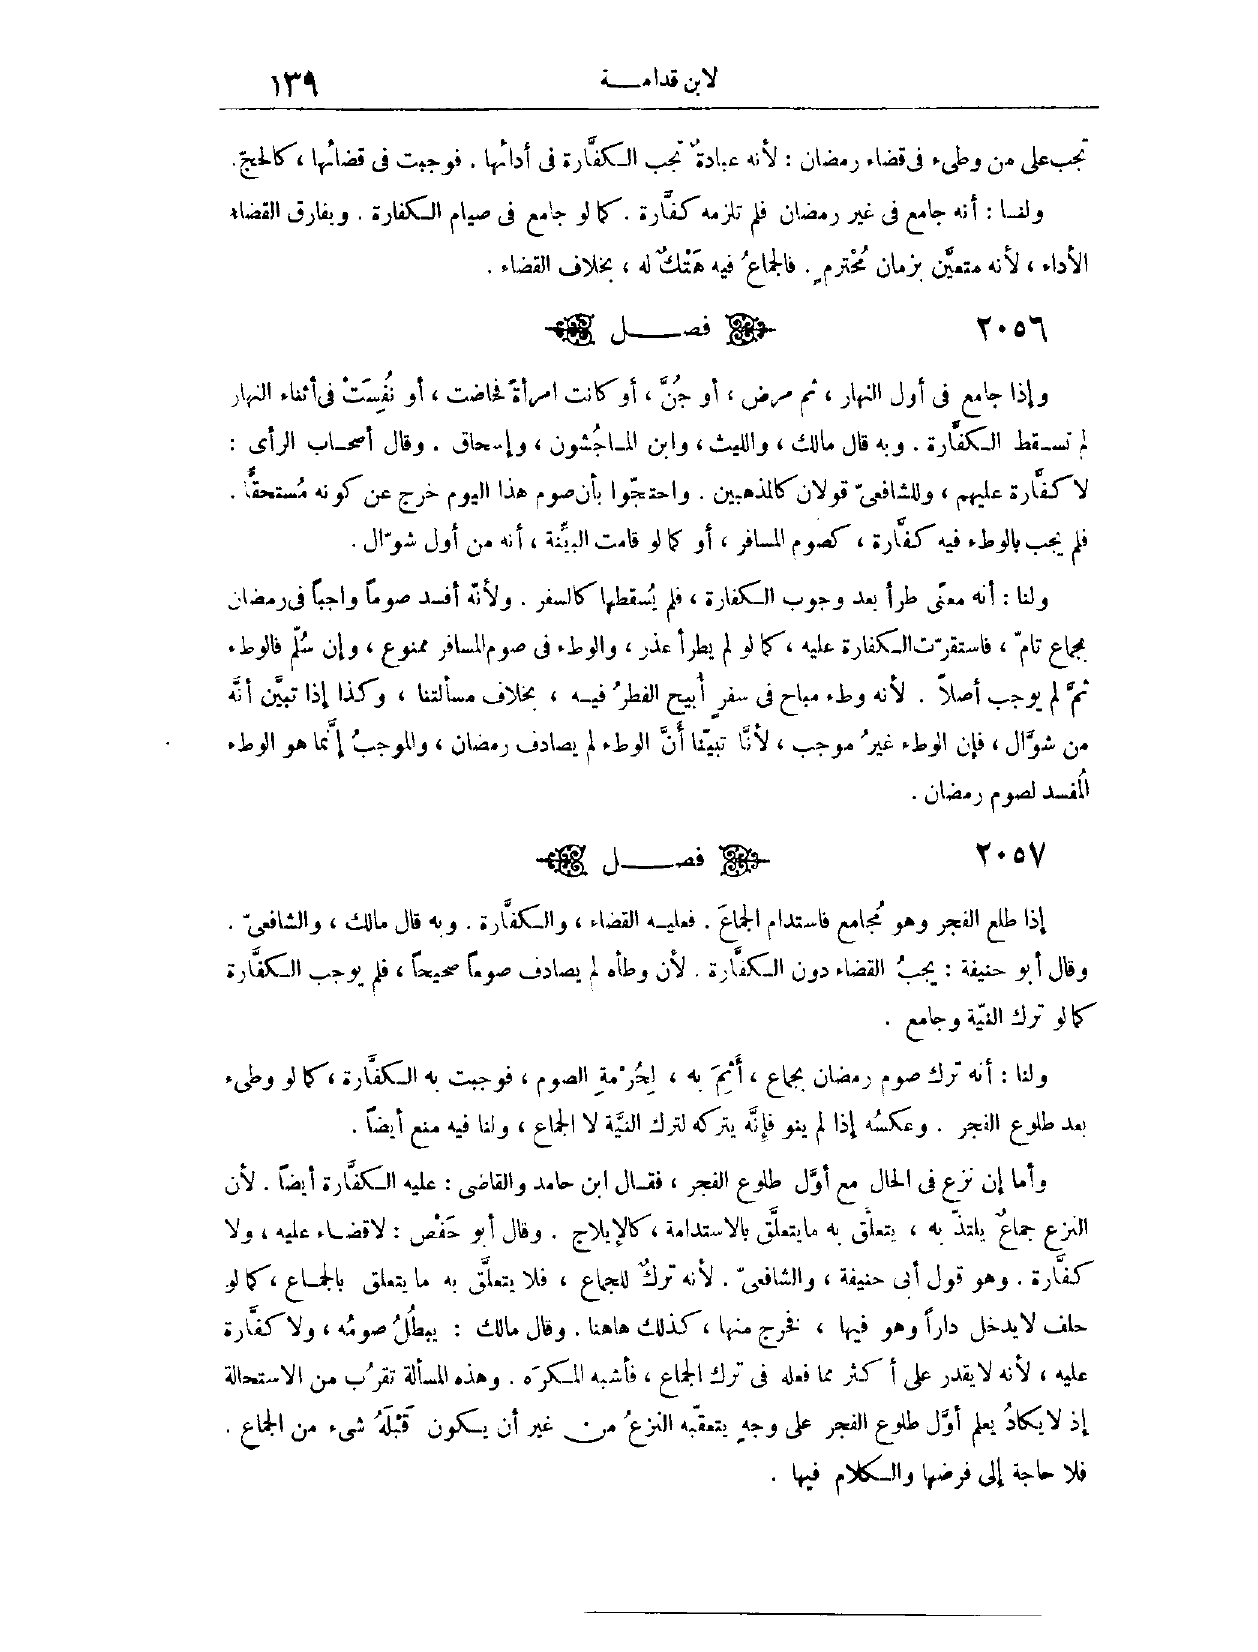 لابن قدامــة ١٣٩
تجب على من وطىء فى قضاء رمضان : لأنه عبادةٌ تجب الـكفَّارة فى أدائها . فوجبت فى قضائها ، كالحجّ .
ولنـا : أنه جامع فى غير رمضان فلم تلزمه كفَّارة . كما لو جامع فى صيام الـكفارة . ويفارق القضاء
الأداء ، لأنه متعيَّن بزمان مُحْترمٍ . فالجماعُ فيه هَتْكٌ له ، بخلاف القضاء .
٢٠٥٦ فصــل
وإذا جامع فى أول النهار ، ثم مرض ، أو جُنَّ ، أو كانت امرأةً فحاضت ، أو نُفِسَتْ فى أثناء النهار
لم تسـقط الـكفَّارة . وبه قال مالك ، والليث ، وابن المـاجُشون ، وإسحاق . وقال أصحـاب الرأى :
لا كفَّارة عليهم ، وللشافعىّ قولان كالمذهبين . واحتجّوا بأن صوم هذا اليوم خرج عن كونه مُستحقًّا .
فلم يجب بالوطء فيه كفَّارة ، كصوم المسافر ، أو كما لو قامت البيِّنة ، أنه من أول شوّال .
ولنا : أنه معنًى طرأ بعد وجوب الـكفارة ، فلم يُسقطها كالسفر . ولأنّه أفسد صوماً واجباً فى رمضان
بجماع تامّ ، فاستقرّت الـكفارة عليه ، كما لو لم يطرأ عذر ، والوطء فى صوم المسافر ممنوع ، وإن سُلّم فالوطء
ثمَّ لم يوجب أصلاً . لأنه وطء مباح فى سفرٍ أُبيح الفطرُ فيـه ، بخلاف مسألتنا ، وكذا إذا تبيَّن أنَّه
من شوَّال ، فإن الوطء غيرُ موجب ، لأنَّا تبيّنّا أنَّ الوطء لم يصادف رمضان ، والموجبُ إنَّما هو الوطء
المُفسد لصوم رمضان .
٢٠٥٧ فصــل
إذا طلع الفجر وهو مُجامع فاستدام الجماعَ . فعليـه القضاء ، والـكفَّارة . وبه قال مالك ، والشافعىّ .
وقال أبو حنيفة : يجبُ القضاء دون الـكفَّارة . لأن وطأه لم يصادف صوماً صحيحاً ، فلم يوجب الـكفَّارة
كما لو ترك النيّة وجامع .
ولنا : أنه ترك صوم رمضان بجماع ، أَثِمَ به ، لِحُرْمةِ الصوم ، فوجبت به الـكفَّارة ، كما لو وطىء
بعد طلوع الفجر . وعكسُه إذا لم ينو فإنَّه يتركه لترك النيَّة لا الجماع ، ولنا فيه منع أيضاً .
وأما إن نزع فى الحال مع أوَّل طلوع الفجر ، فقـال ابن حامد والقاضى : عليه الـكفَّارة أيضاً . لأن
النزع جماعٌ يلتذّ به ، يتعلَّق به ما يتعلَّق بالاستدامة ، كالإيلاج . وقال أبو حَفْص : لا قضـاء عليه ، ولا
كفَّارة . وهو قول أبى حنيفة ، والشافعىّ . لأنه تركٌ للجماع ، فلا يتعلَّق به ما يتعلق بالجمـاع ، كما لو
حلف لا يدخل داراً وهو فيها ، فخرج منها ، كذلك هاهنا . وقال مالك : يبطُلُ صومُه ، ولا كفَّارة
عليه ، لأنه لا يقدر على أكثر مما فعله فى ترك الجماع ، فأشبه المـكرَه . وهذه المسألة تقرُب من الاستحالة
إذ لا يكادُ يعلم أوَّل طلوع الفجر على وجهٍ يتعقّبه النزعُ من غير أن يـكون قَبْلَهُ شىء من الجماع .
فلا حاجة إلى فرضها والـكلام فيها .